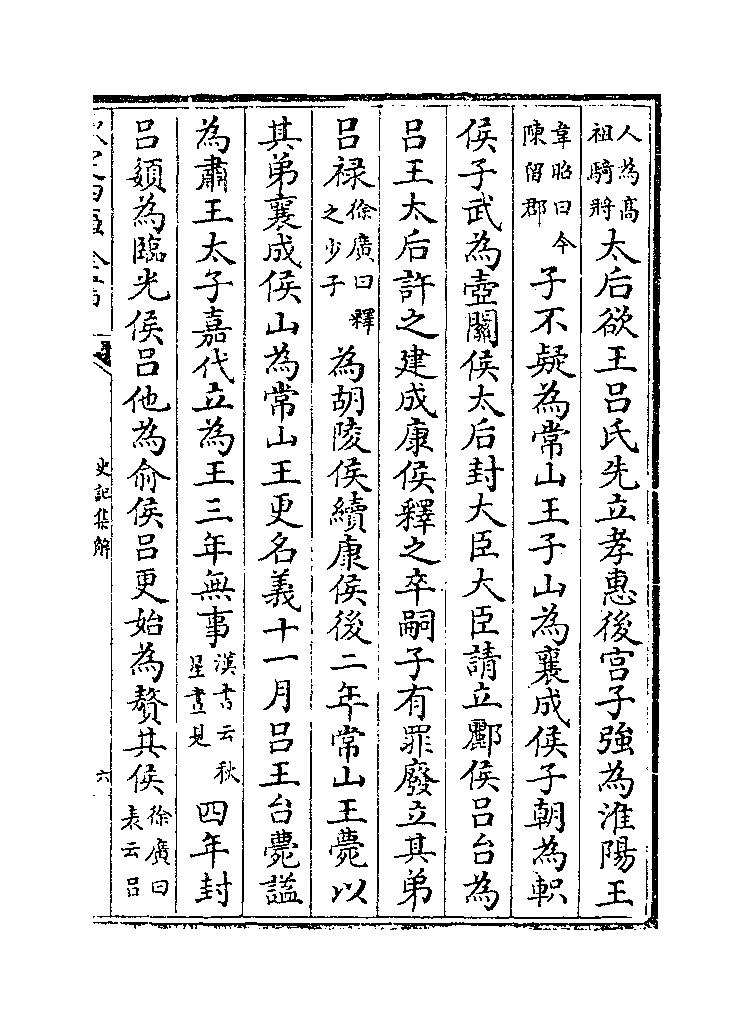 人為髙祖騎將太后欲王吕氏先立孝惠後宫子強為淮陽王
韋昭曰今陳留郡子不疑為常山王子山為襄成侯子朝為軹
侯子武為壺關侯太后封大臣大臣請立酈侯吕台為
吕王太后許之建成康侯釋之卒嗣子有罪廢立其弟
吕禄徐廣曰釋之少子為胡陵侯續康侯後二年常山王薨以
其弟襄成侯山為常山王更名義十一月吕王台薨諡
為肅王太子嘉代立為王三年無事漢書云秋星晝見四年封
吕嬃為臨光侯吕他為俞侯吕更始為贅其侯徐廣曰表云吕
史記集解
六